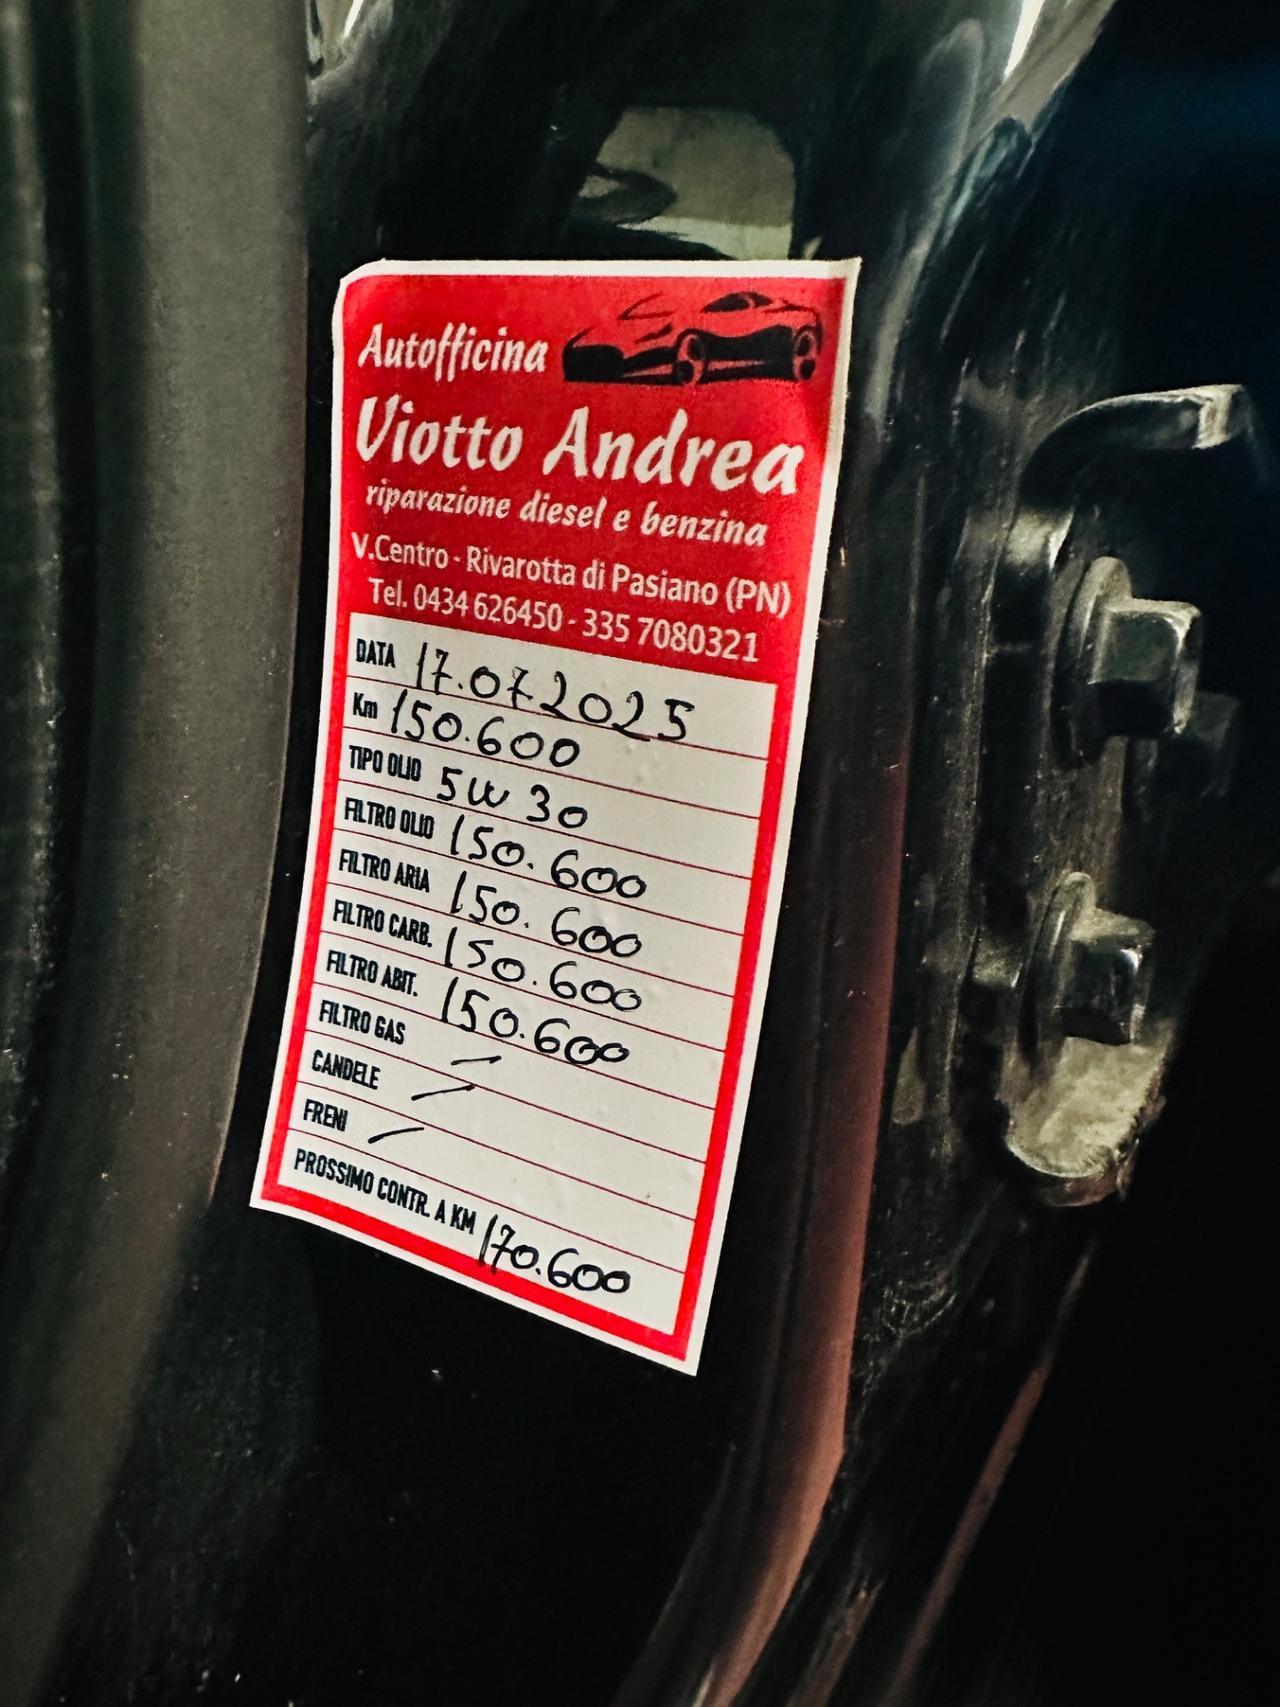 Autofficina
Viotto Andrea
riparazione diesel e benzina
V.Centro - Rivarotta di Pasiano (PN)
Tel. 0434 626450 - 335 7080321
DATA 17.07.2025
Km 150.600
TIPO OLIO 5W30
FILTRO OLIO 150.600
FILTRO ARIA 150.600
FILTRO CARB. 150.600
FILTRO ABIT. 150.600
FILTRO GAS /
CANDELE /
FRENI /
PROSSIMO CONTR. A KM 170.600